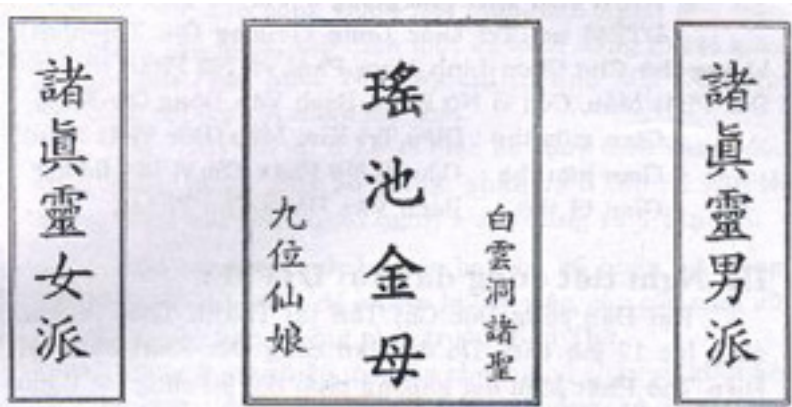 諸眞靈男派
白雲洞諸聖
瑤池金母
九位仙娘
諸眞靈女派